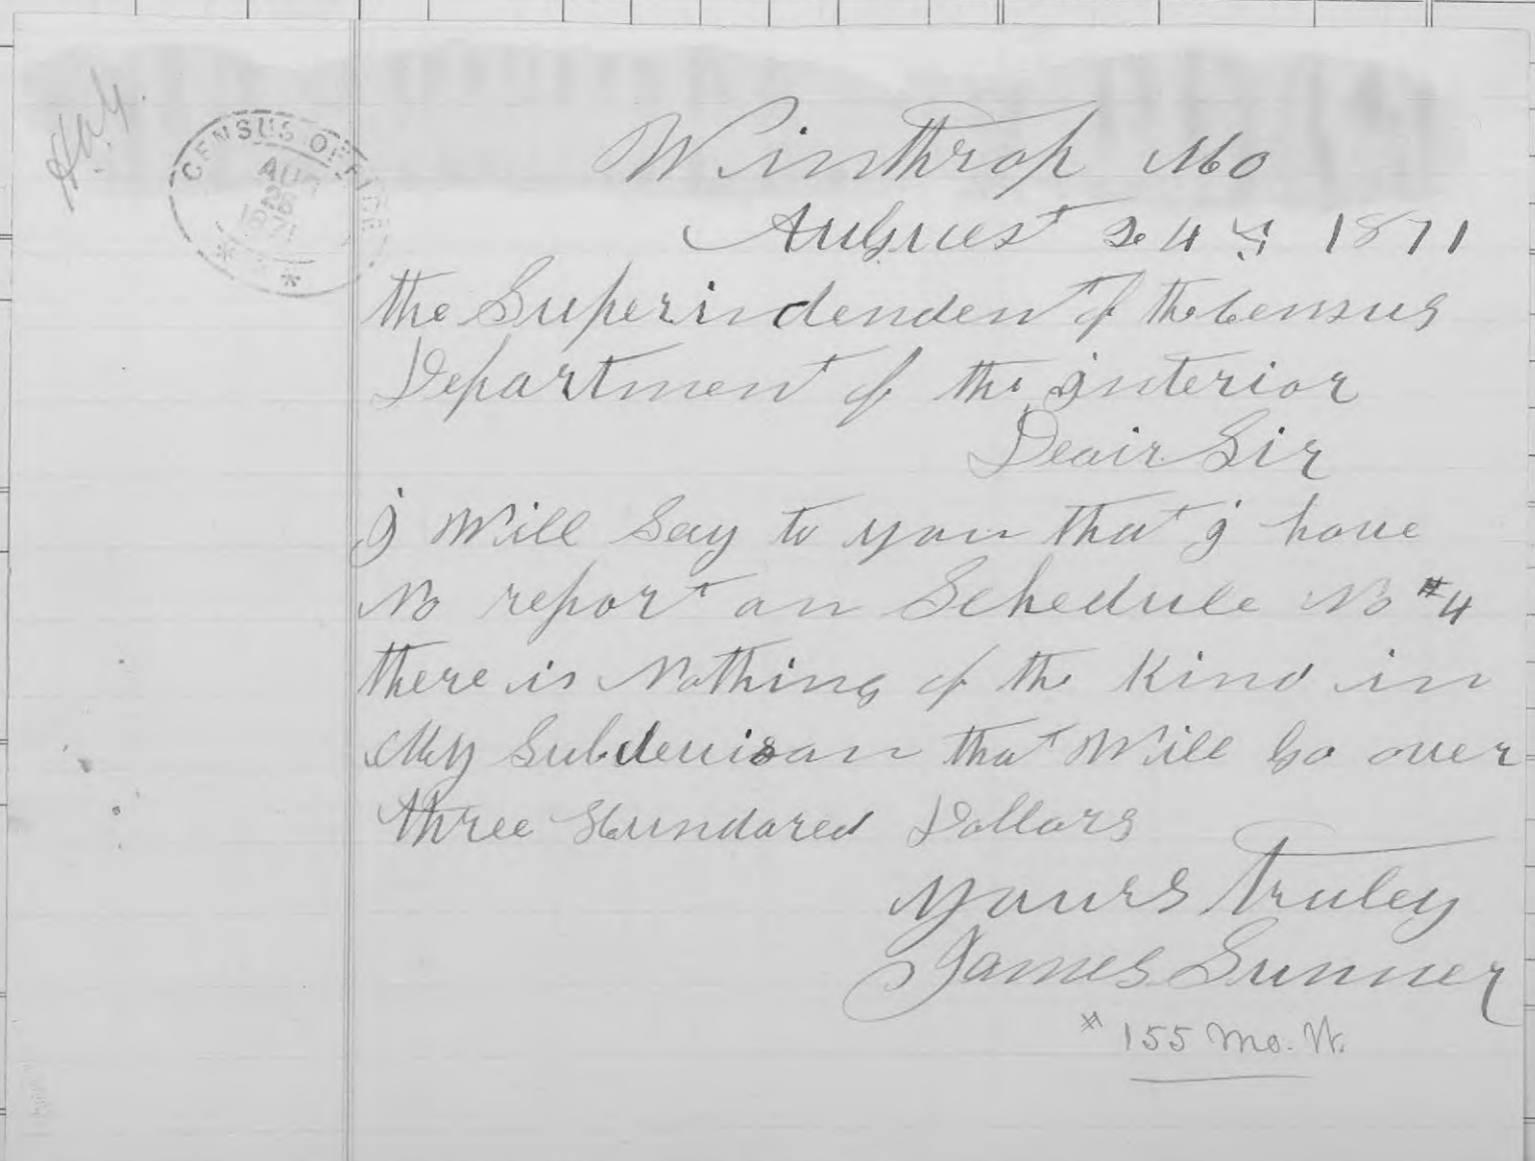 CENSUS OFFICE
AUG
26
1871
Winthrop Mo
August 24th 1871
the Superindenden of the Census
Department of the interior
Deair Sir
I Will Say to you that I have
No report on Schedule No #4
there is Nothing of the Kind in
My Subdevison that Will Go over
three Hundared Dollars
yours Truley
James Sumner
# 155 Mo. W.